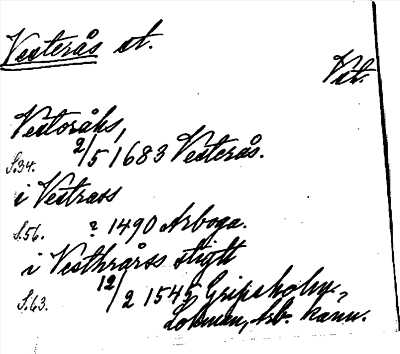 Vesterås st.
Vst.
Vestoråhs,
S.34. 2/5 1683 Vesterås.
i Vestrass
S.56. ? 1490 Arboga.
i Vesthrårss stigtt
S.63. 12/2 1545 Gripsholm.
Arb. kann.